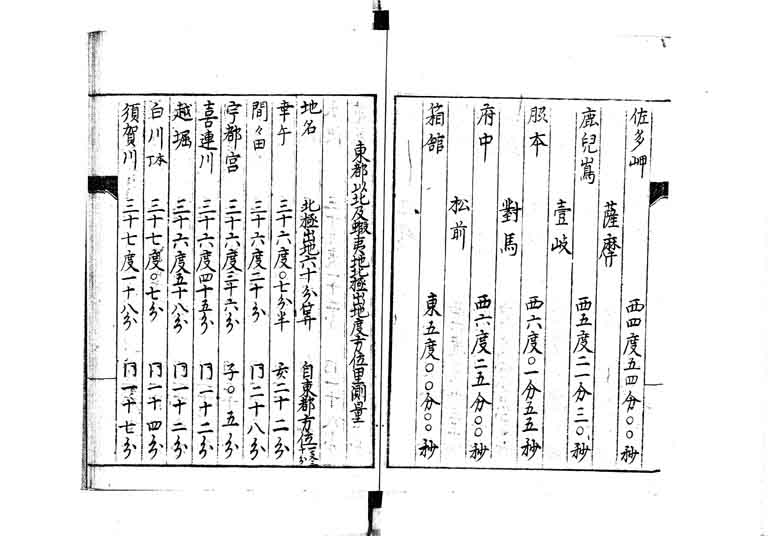 佐多岬 西四度五四分〇〇秒
薩摩
鹿兒嶌 西五度二一分三〇秒
壹岐
熊本 西六度〇一分五五秒
對馬
府中 西六度二五分〇〇秒
松前
箱舘 東五度〇〇分〇〇秒
東都以北及蝦夷地北極出地度方位里測量
地名 北極出地六十分算 自東都方位
幸手 三十六度〇七分半 亥二十二分
間々田 三十六度二十分 同二十八分
宇都宮 三十六度三十六分 子〇五分
喜連川 三十六度四十五分 同一十二分
越堀 三十六度五十八分 同一十二分
白川 三十七度〇七分 同一十四分
須賀川 三十七度一十八分 同一十七分